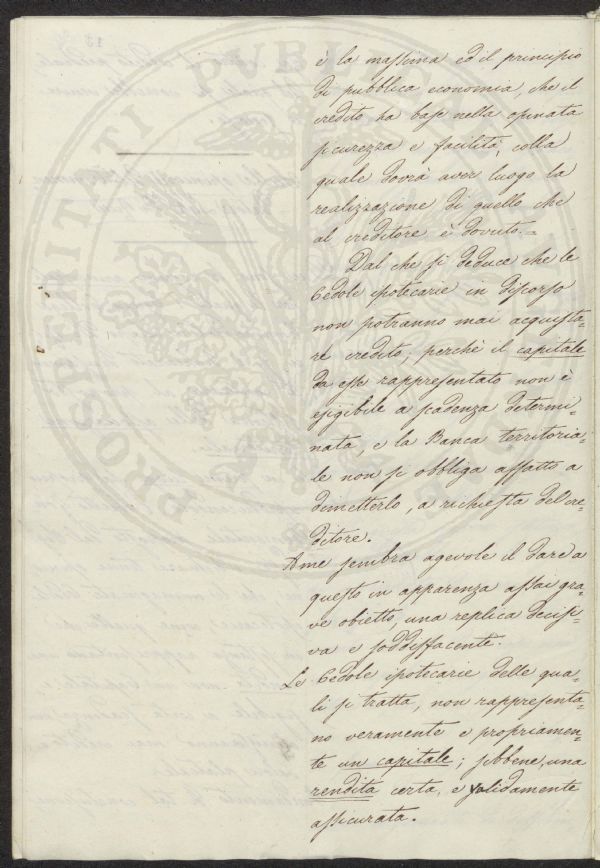 è la massima ed il principio
di pubblica economia, che il
credito ha base nella opinata
sicurezza e facilità, colla
quale dovrà aver luogo la
realizzazione di quello che
al creditore è dovuto.=
Dal che si deduce che le
Cedole ipotecarie in discorso
non potranno mai acquista-
re credito; perchè il capitale
da esse rappresentato non è
esigibile a scadenza determi-
nata, e la Banca territoria-
le non si obbliga affatto a
dimetterlo, a richiesta del cre-
ditore.
A me sembra agevole il dare a
questo in apparenza assai gra-
ve obietto, una replica decisi-
va e soddisfacente.
Le Cedole ipotecarie delle qua-
li si tratta, non rappresenta-
no veramente e propriamen-
te un capitale; sebbene, una
rendita certa, e validamente
assicurata.
PROSPERITATI PUBLICAE